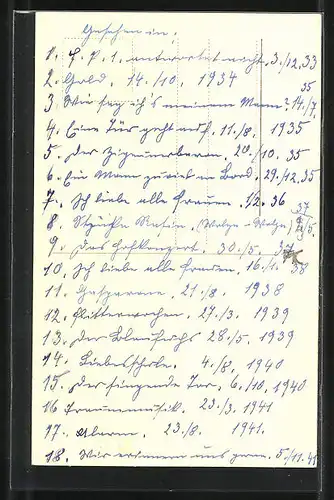 Gesehen in:
1. F. P. 1. antwortet nicht. 3./12. 33
2. Gold. 14./10. 1934
3. Wie sag ich's meinem Mann? 14./7. 35
4. Eine Tür geht auf. 11./8. 1935
5. Der Zigeunerbaron. 20./10. 35
6. Ein Mann zuviel an Bord. 29./12. 35
7. Ich liebe alle Frauen. 1/2. 36
8. (Wolga - Wolga) 37
9. Das Hofkonzert. 30./5. 37
10. Ich liebe alle Frauen. 16./1. 38
11. Gasparone. 21./8. 1938
12. Flitterwochen. 27./3. 1939
13. Der Blaufuchs. 28./5. 1939
14. Liebesschule. 4./8. 1940
15. Der singende Tor. 6./10. 1940
16 Traummusik. 23./3. 1941
17. Alarm. 23./8. 1941.
18. Wir erinnern uns gern. 5./11. 41